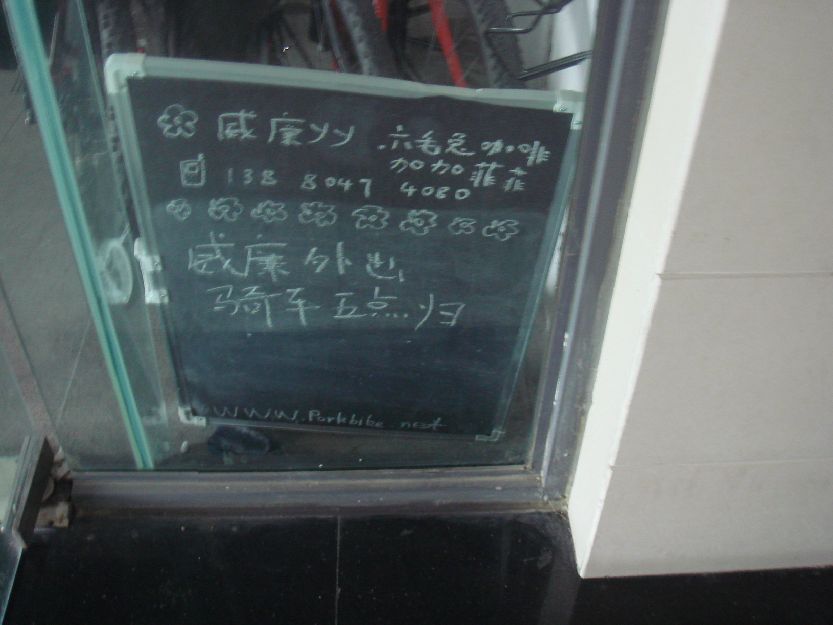 威廉丫丫 六毛兔咖啡
加加菲菲
138 8047 4080
威廉外出
骑车五点归
www.Porkbike.net